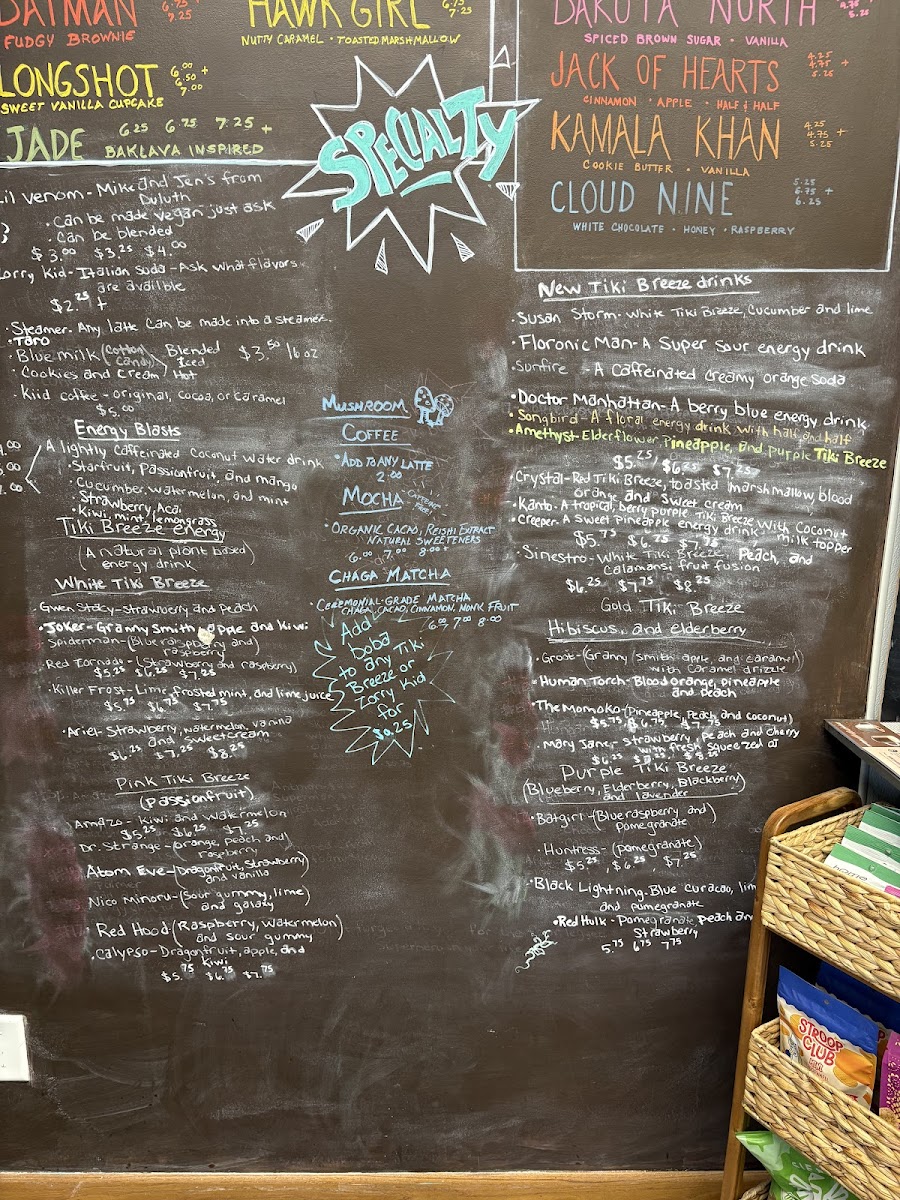 BATMAN 6.75 7.25
FUDGY BROWNIE
HAWK GIRL 7.25
NUTTY CARAMEL · TOASTED MARSHMALLOW
LONGSHOT 6.00 + 6.50 7.00
SWEET VANILLA CUPCAKE
JADE 6.25 6.75 7.25 +
BAKLAVA INSPIRED
SPECIALTY
DAKOTA NORTH 5.25
SPICED BROWN SUGAR · VANILLA
JACK OF HEARTS 4.25 4.75 + 5.25
CINNAMON · APPLE · HALF & HALF
KAMALA KHAN 4.25 4.75 + 5.25
COOKIE BUTTER · VANILLA
CLOUD NINE 5.25 5.75 + 6.25
WHITE CHOCOLATE · HONEY · RASPBERRY
Lil venom - Mike and Jen's from
Duluth
· Can be made vegan just ask
· Can be blended
$3.00 $3.25 $4.00
Zorry Kid - Italian Soda - Ask what flavors
are availble
$2.25 +
· Steamer - Any latte can be made into a steamer
· Taro
· Blue milk (cotton candy) Blended $3.50 16 oz
Iced
· Cookies and Cream Hot
· Kiid coffee - original, cocoa, or Caramel
$5.00
Energy Blasts
A lightly caffeinated Coconut water drink
· Starfruit, Passionfruit, and mango
· Cucumber, watermelon, and mint
· Strawberry, Acai
· Kiwi, mint, lemongrass
Tiki Breeze energy
(A natural plant based
energy drink)
White Tiki Breeze
Gwen Stacy - Strawberry and Peach
· Joker - Granny Smith apple and kiwi
Spiderman - (Blue raspberry and
raspberry)
Red Tornado - (Strawberry and raspberry)
$5.25 $6.25 $7.25
· Killer Frost - Lime, frosted mint, and lime juice
$5.75 $6.75 $7.75
· Ariel - Strawberry, watermelon, vanilla
and sweet cream
$6.25 $7.25 $8.25
Pink Tiki Breeze
(Passionfruit)
Amazo - Kiwi and Watermelon
$5.25 $6.25 $7.25
Dr. Strange - (orange, peach and
raspberry)
Atom Eve - (Dragonfruit, Strawberry
and vanilla)
Nico Minoru - (Sour gummy, lime
and galaxy)
Red Hood (Raspberry, Watermelon
and sour gummy)
· Calypso - Dragonfruit, apple, and
Kiwi
$5.75 $6.75 $7.75
MUSHROOM
COFFEE
· ADD TO ANY LATTE
2.00
MOCHA CAFFEINE FREE!
· ORGANIC CACAO, REISHI EXTRACT
NATURAL SWEETENERS
6.00 7.00 8.00+
CHAGA MATCHA
· CEREMONIAL-GRADE MATCHA
CHAGA, CACAO, CINNAMON, MONK FRUIT
6.00 7.00 8.00
Add
boba
to any Tiki
Breeze or
Zorry Kid
for
$0.25
New Tiki Breeze drinks
· Susan Storm - White Tiki Breeze, Cucumber and lime
· Floronic Man - A Super Sour energy drink
· Sunfire - A Caffeinated creamy orange soda
· Doctor Manhattan - A berry blue energy drink
· Songbird - A floral energy drink with half and half
· Amethyst - Elderflower, Pineapple, and purple Tiki Breeze
$5.25 / $6.25 $7.25
· Crystal - Red Tiki Breeze, toasted marshmallow, blood
orange, and sweet cream
· Kanto - A tropical, berry, purple Tiki Breeze with Coconut
milk topper
· Creeper - A sweet pineapple energy drink
$5.75 $6.75 $7.75
· Sinestro - White Tiki Breeze, Peach, and
Calamansi fruit fusion
$6.25 $7.25 $8.25
Gold Tiki Breeze
Hibiscus, and elderberry
· Groot - (Granny Smith apple, and caramel)
with caramel drizzle
· Human Torch - Blood orange, pineapple
and peach
· The Momoko - (Pineapple, Peach, and coconut)
$5.75, $6.75, $7.75
· Mary Jane - Strawberry, peach and cherry
with fresh squeezed OJ
$6.25 $7.25 $8.25
Purple Tiki Breeze
(Blueberry, Elderberry, Blackberry)
and lavender
· Batgirl - (Blue raspberry and
Pomegranate)
· Huntress - (pomegranate)
$5.25, $6.25, $7.25
· Black Lightning - Blue curacao, lim
and pomegranate
· Red Hulk - Pomegranate, Peach an
Strawberry
5.75 6.75 7.75
STROOP
CLUB